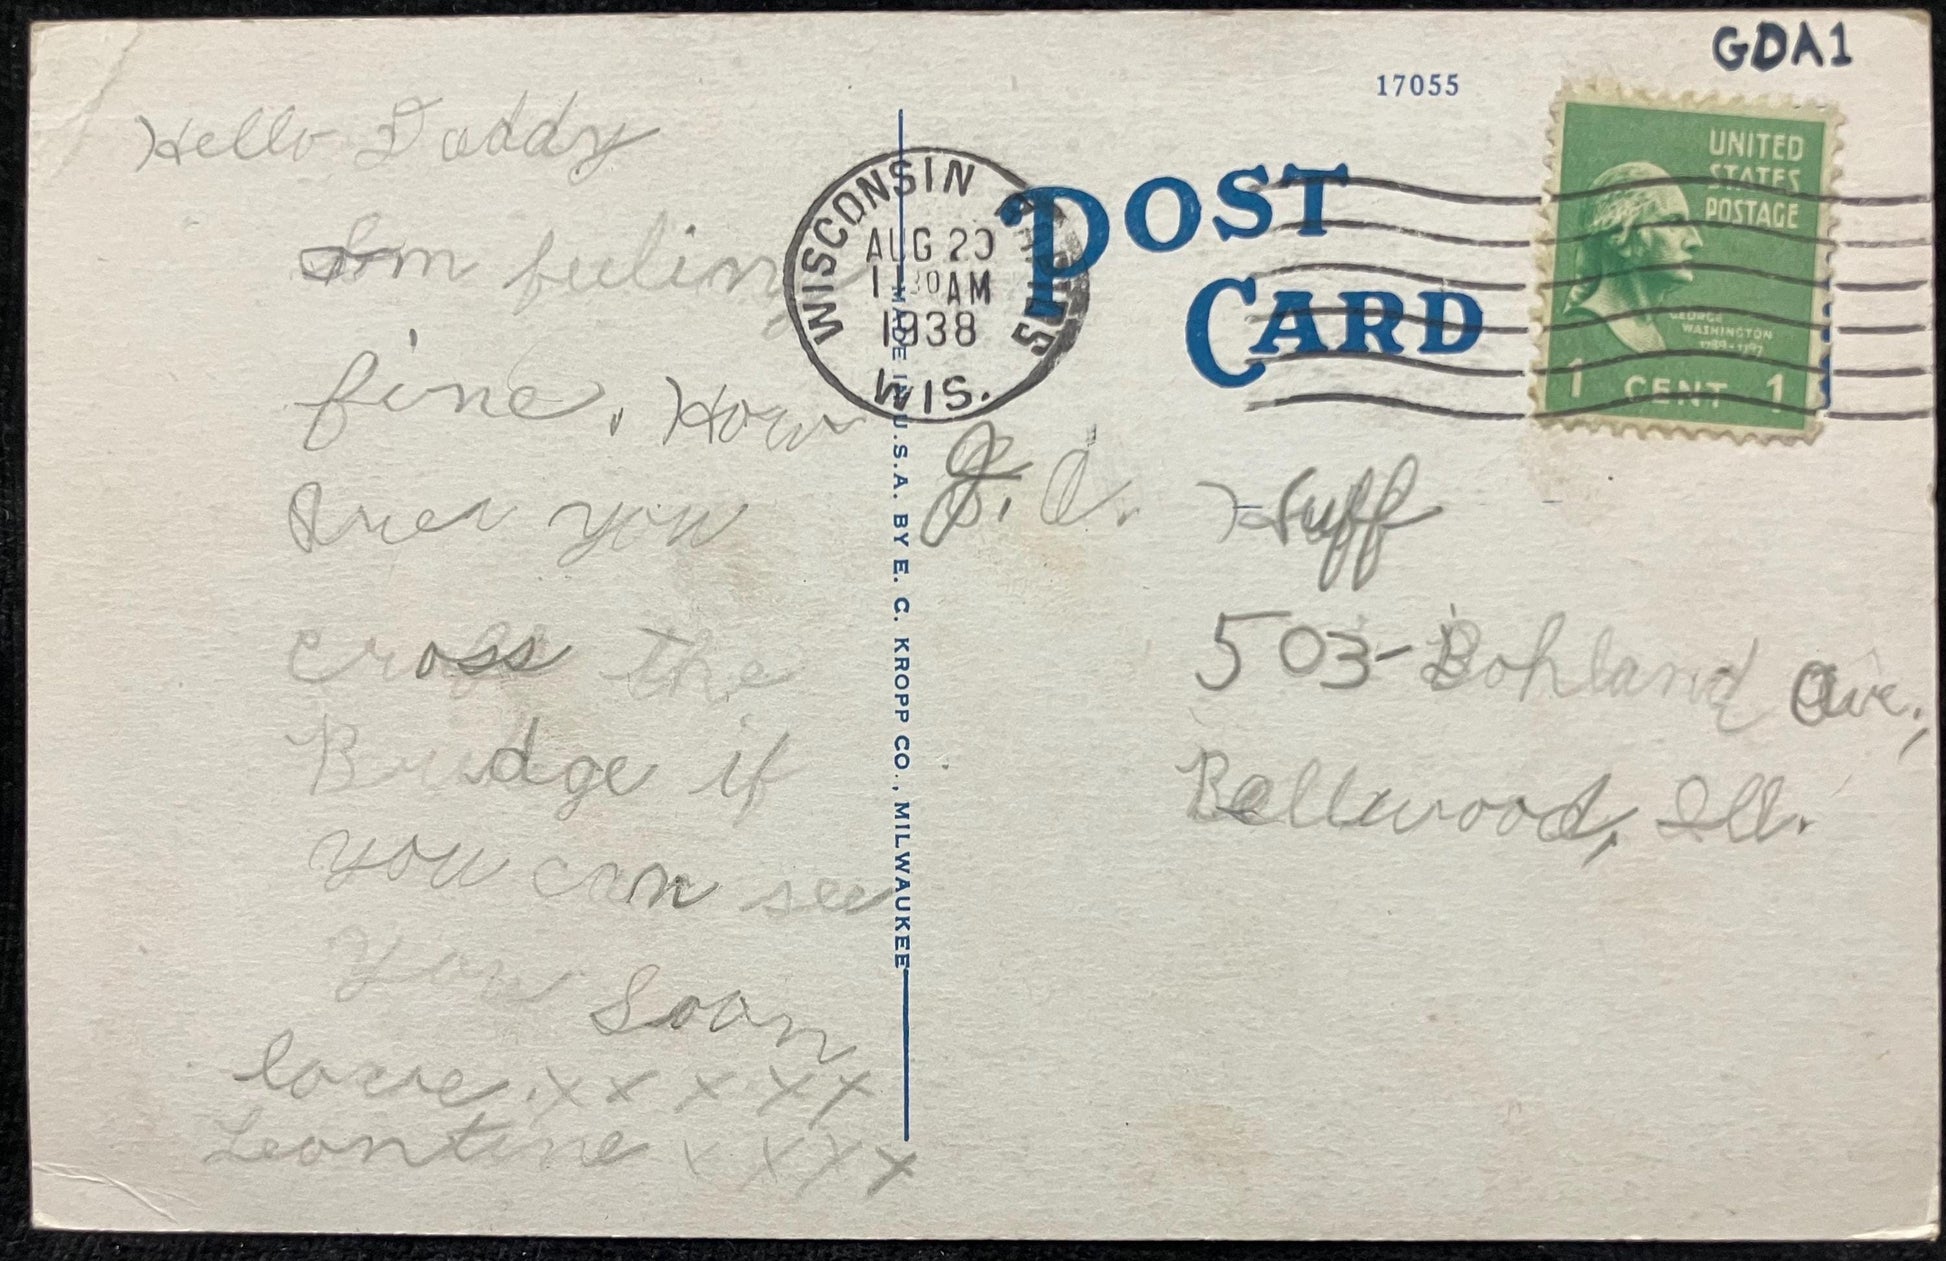 GDA1
17055
UNITED
STATES
POSTAGE
GEORGE
WASHINGTON
1789-1797
1 CENT 1
POST
CARD
WISCONSIN RAPIDS
AUG 20
11 30 AM
1938
WIS.
MADE IN U.S.A. BY E. C. KROPP CO., MILWAUKEE
Hello Daddy
Im feeling
fine. How
you
cross the
Bridge if
you can see
you soon
love. x x x x x
Leontine x x x x
J. A. Huff
503-Bohland Ave.,
Bellwood, Ill.